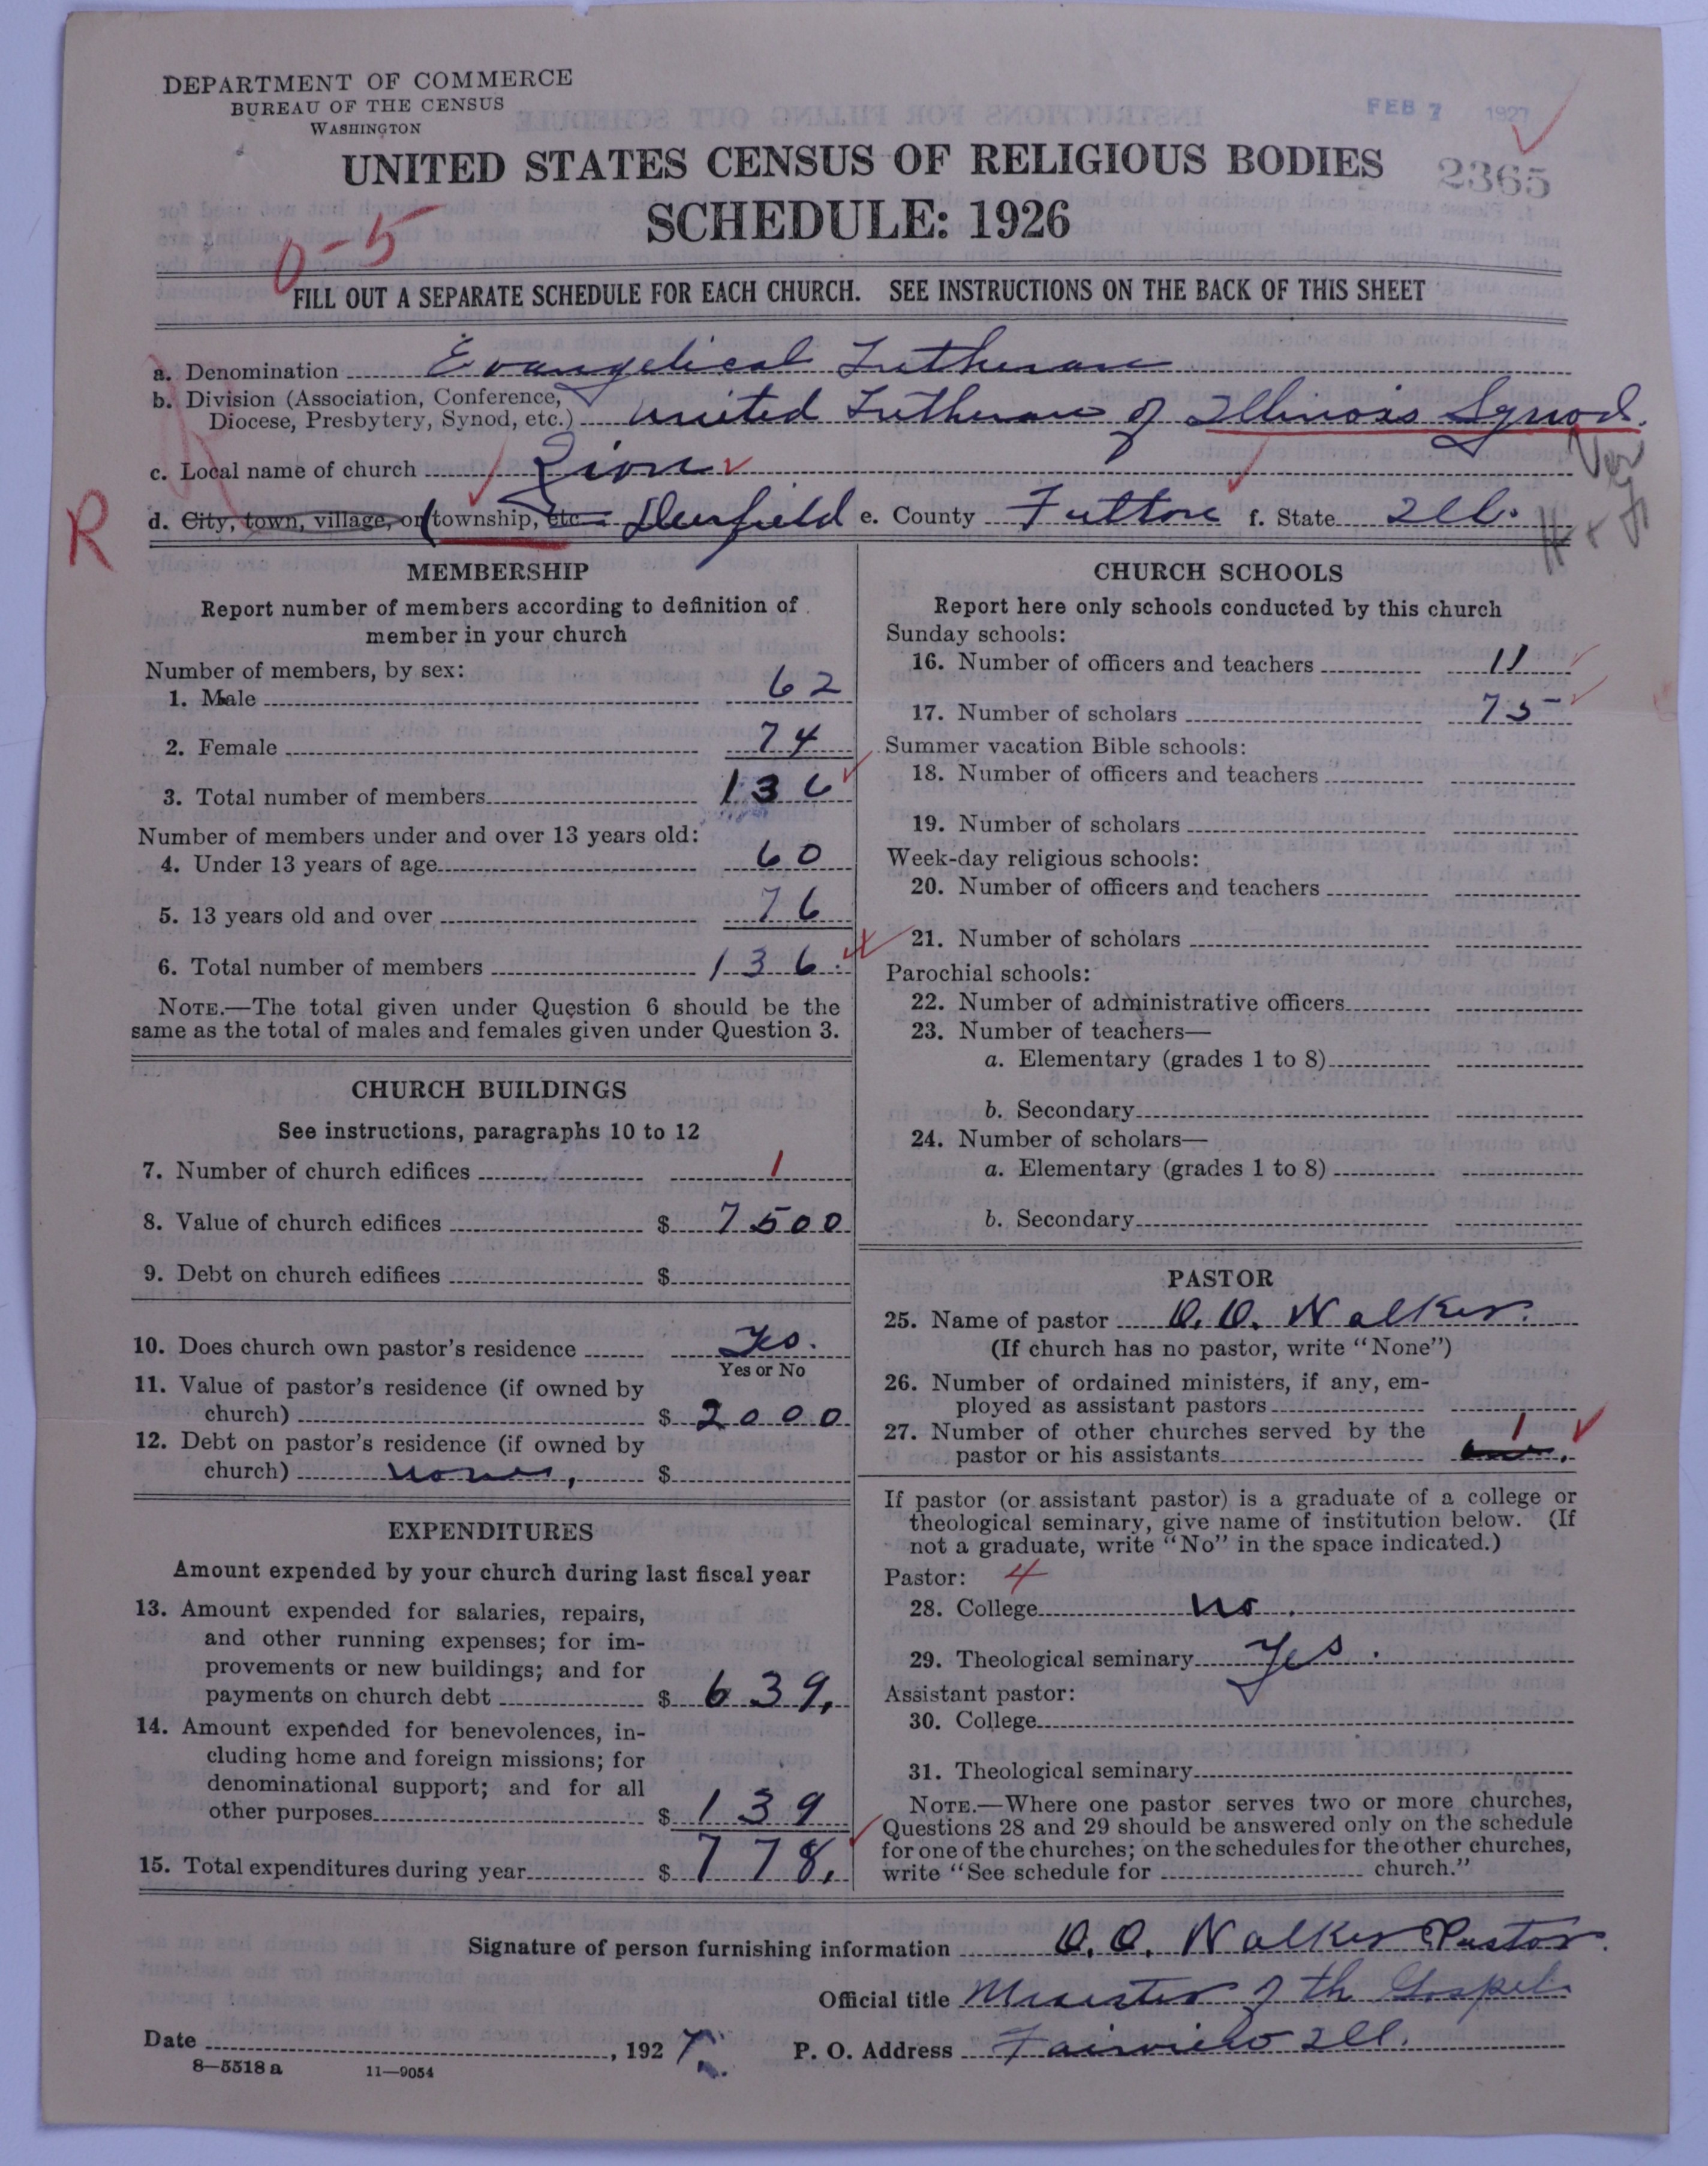 DEPARTMENT OF COMMERCE
BUREAU OF THE CENSUS
WASHINGTON
FEB 7 1927
UNITED STATES CENSUS OF RELIGIOUS BODIES
2365
SCHEDULE: 1926
0-5
FILL OUT A SEPARATE SCHEDULE FOR EACH CHURCH. SEE INSTRUCTIONS ON THE BACK OF THIS SHEET
a. Denomination Evangelical Lutheran
b. Division (Association, Conference,
Diocese, Presbytery, Synod, etc.) United Lutheran of Illinois Synod.
c. Local name of church Zion
R
d. City, town, village, or (township, etc. Deerfield e. County Fulton f. State Ill.
MEMBERSHIP
Report number of members according to definition of
member in your church
Number of members, by sex:
1. Male 62
2. Female 74
3. Total number of members 136
Number of members under and over 13 years old:
4. Under 13 years of age 60
5. 13 years old and over 76
6. Total number of members 136.
NOTE.—The total given under Question 6 should be the
same as the total of males and females given under Question 3.
CHURCH BUILDINGS
See instructions, paragraphs 10 to 12
7. Number of church edifices 1
8. Value of church edifices $ 7500
9. Debt on church edifices $
10. Does church own pastor's residence Yes.
Yes or No
11. Value of pastor's residence (if owned by
church) $ 2000
12. Debt on pastor's residence (if owned by
church) none, $
EXPENDITURES
Amount expended by your church during last fiscal year
13. Amount expended for salaries, repairs,
and other running expenses; for im-
provements or new buildings; and for
payments on church debt $ 639,
14. Amount expended for benevolences, in-
cluding home and foreign missions; for
denominational support; and for all
other purposes $ 139
15. Total expenditures during year $ 778,
CHURCH SCHOOLS
Report here only schools conducted by this church
Sunday schools:
16. Number of officers and teachers 11
17. Number of scholars 75
Summer vacation Bible schools:
18. Number of officers and teachers
19. Number of scholars
Week-day religious schools:
20. Number of officers and teachers
21. Number of scholars
Parochial schools:
22. Number of administrative officers
23. Number of teachers—
a. Elementary (grades 1 to 8)
b. Secondary
24. Number of scholars—
a. Elementary (grades 1 to 8)
b. Secondary
PASTOR
25. Name of pastor O. O. Walker.
(If church has no pastor, write "None")
26. Number of ordained ministers, if any, em-
ployed as assistant pastors
27. Number of other churches served by the 1
pastor or his assistants one.
If pastor (or assistant pastor) is a graduate of a college or
theological seminary, give name of institution below. (If
not a graduate, write "No" in the space indicated.)
Pastor: 4
28. College no.
29. Theological seminary Yes.
Assistant pastor:
30. College
31. Theological seminary
NOTE.—Where one pastor serves two or more churches,
Questions 28 and 29 should be answered only on the schedule
for one of the churches; on the schedules for the other churches,
write "See schedule for church."
Signature of person furnishing information O. O. Walker Pastor.
Official title Minister of th Gospel.
Date , 1927. P. O. Address Fairview Ill.
8—5518 a 11—9054